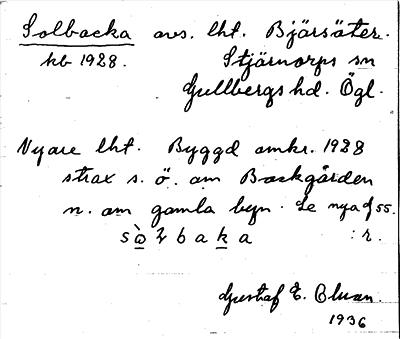 Solbacka avs. lht. Bjärsäter.
kb 1928. Stjärnorps sn
Gullbergs hd. Ögl.
Nyare lht. Byggd omkr. 1928
strax s. ö. om Backgården
n. om gamla byn. Se nya 55.
sò̱łbaḵa :r.
Gustaf E.
1936